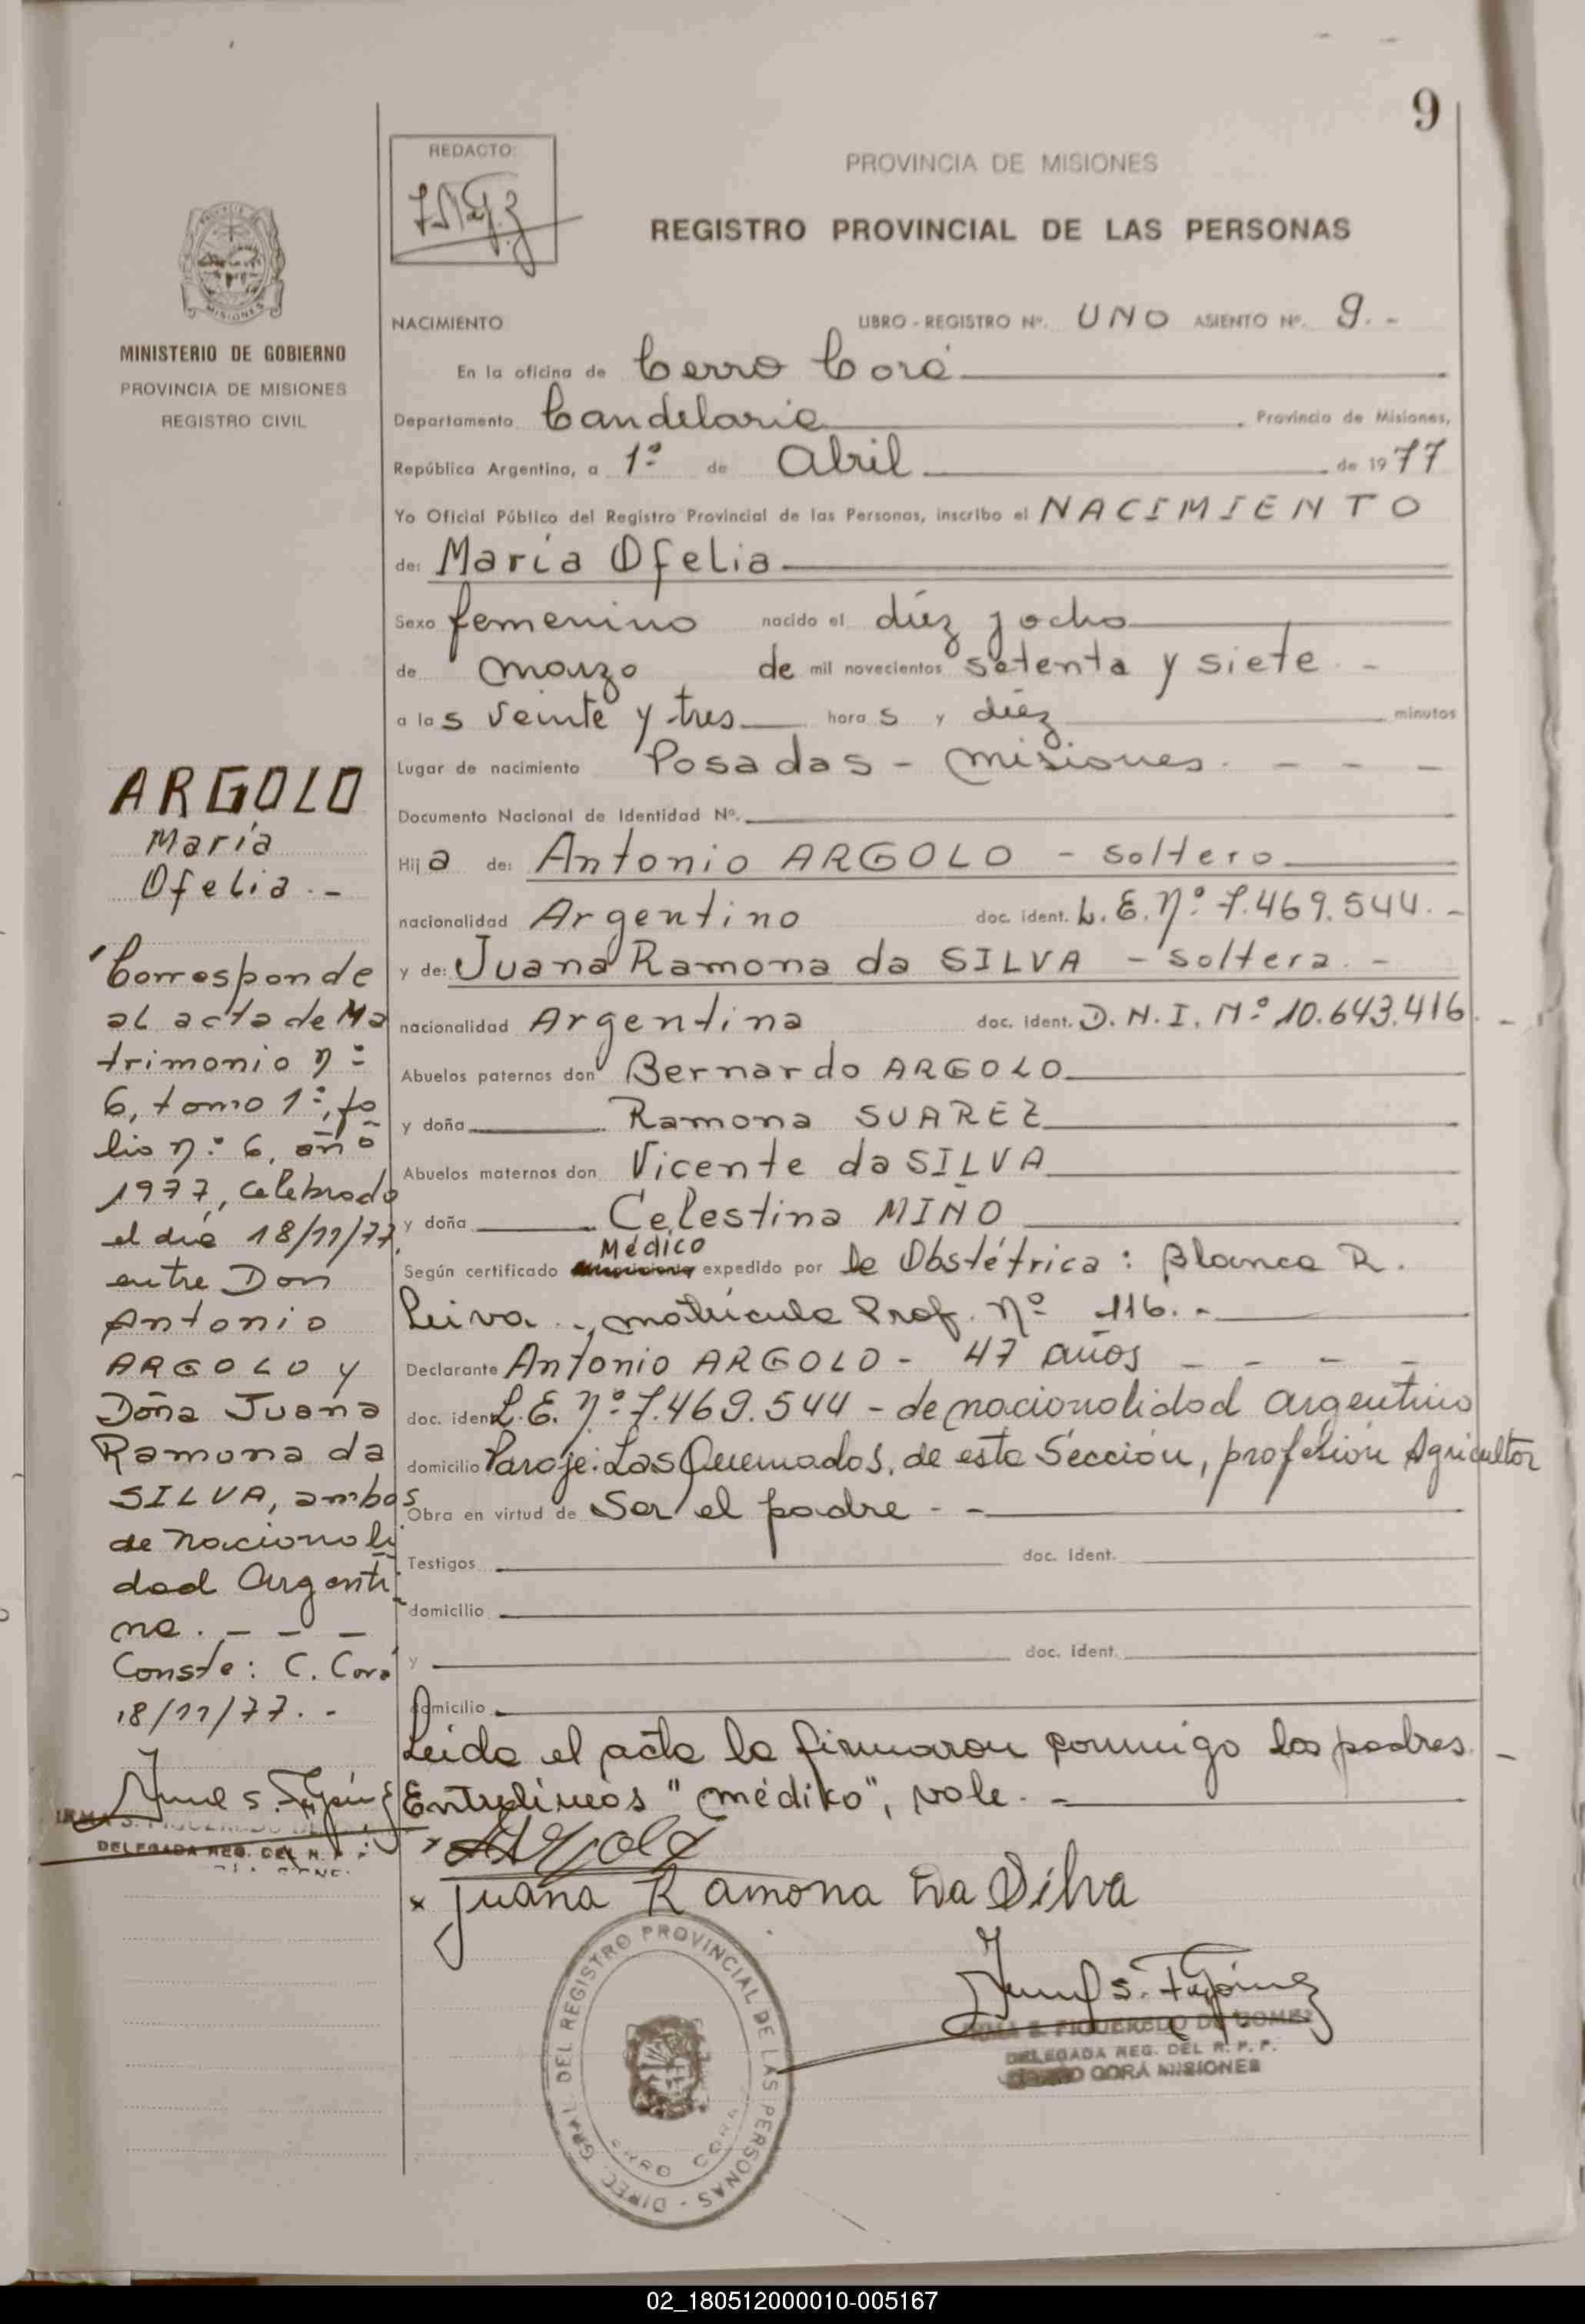 9
REDACTO:
PROVINCIA DE MISIONES
REGISTRO PROVINCIAL DE LAS PERSONAS
MISIONES
MINISTERIO DE GOBIERNO
PROVINCIA DE MISIONES
REGISTRO CIVIL
NACIMIENTO LIBRO - REGISTRO Nº. UNO ASIENTO Nº. 9. -
En la oficina de Cerro Corá
Departamento Candelaria Provincia de Misiones,
República Argentina, a 1º de Abril de 1977
Yo Oficial Público del Registro Provincial de las Personas, inscribo el NACIMIENTO
de: María Ofelia
Sexo femenino nacido el diéz y ocho
de marzo de mil novecientos setenta y siete. -
a las veinte y tres horas y diéz minutos
Lugar de nacimiento Posadas - Misiones. - - -
Documento Nacional de Identidad Nº.
Hija de: Antonio ARGOLO - soltero
nacionalidad Argentino doc. ident. L. E. Nº 7.469.544. -
y de: Juana Ramona da SILVA - soltera. -
nacionalidad Argentina doc. ident. D. N. I. Nº 10.643.416. -
Abuelos paternos don Bernardo ARGOLO
y doña Ramona SUAREZ
Abuelos maternos don Vicente da SILVA
y doña Celestina MIÑO
Médico
Según certificado expedido por la Obstétrica: Blanca R.
Leiva.., matrícula Prof. Nº 116. -
Declarante Antonio ARGOLO - 47 años - - - -
doc. ident. L. E. Nº 7.469.544 - de nacionalidad argentino
domicilio Paraje: Las Quemados, de esta Sección, profesión Agricultor
Obra en virtud de Ser el padre - -
Testigos doc. Ident.
domicilio
y doc. ident.
domicilio
Leida el acta la firmaron conmigo los padres. -
Entrelineas "médiko", vale. -
Argolo
x Juana Ramona Da Silva
ARGOLO
María
Ofelia. -
Corresponde
al acta de Ma
trimonio Nº
6, tomo 1º, fo
lio Nº 6, año
1977, celebrado
el día 18/11/77,
entre Don
Antonio
ARGOLO y
Doña Juana
Ramona da
SILVA, ambos
de nacionali
dad Argenti
na. - - -
Conste: C. Corá
18/11/77. -
DELEGADA REG. DEL R. P. P.
DIREC. GRAL. DEL REGISTRO PROVINCIAL DE LAS PERSONAS -
CERRO CORA
IRMA S. FIGUEREDO DE GOMEZ
DELEGADA REG. DEL R. P. P.
CERRO CORÁ MISIONES
02_180512000010-005167